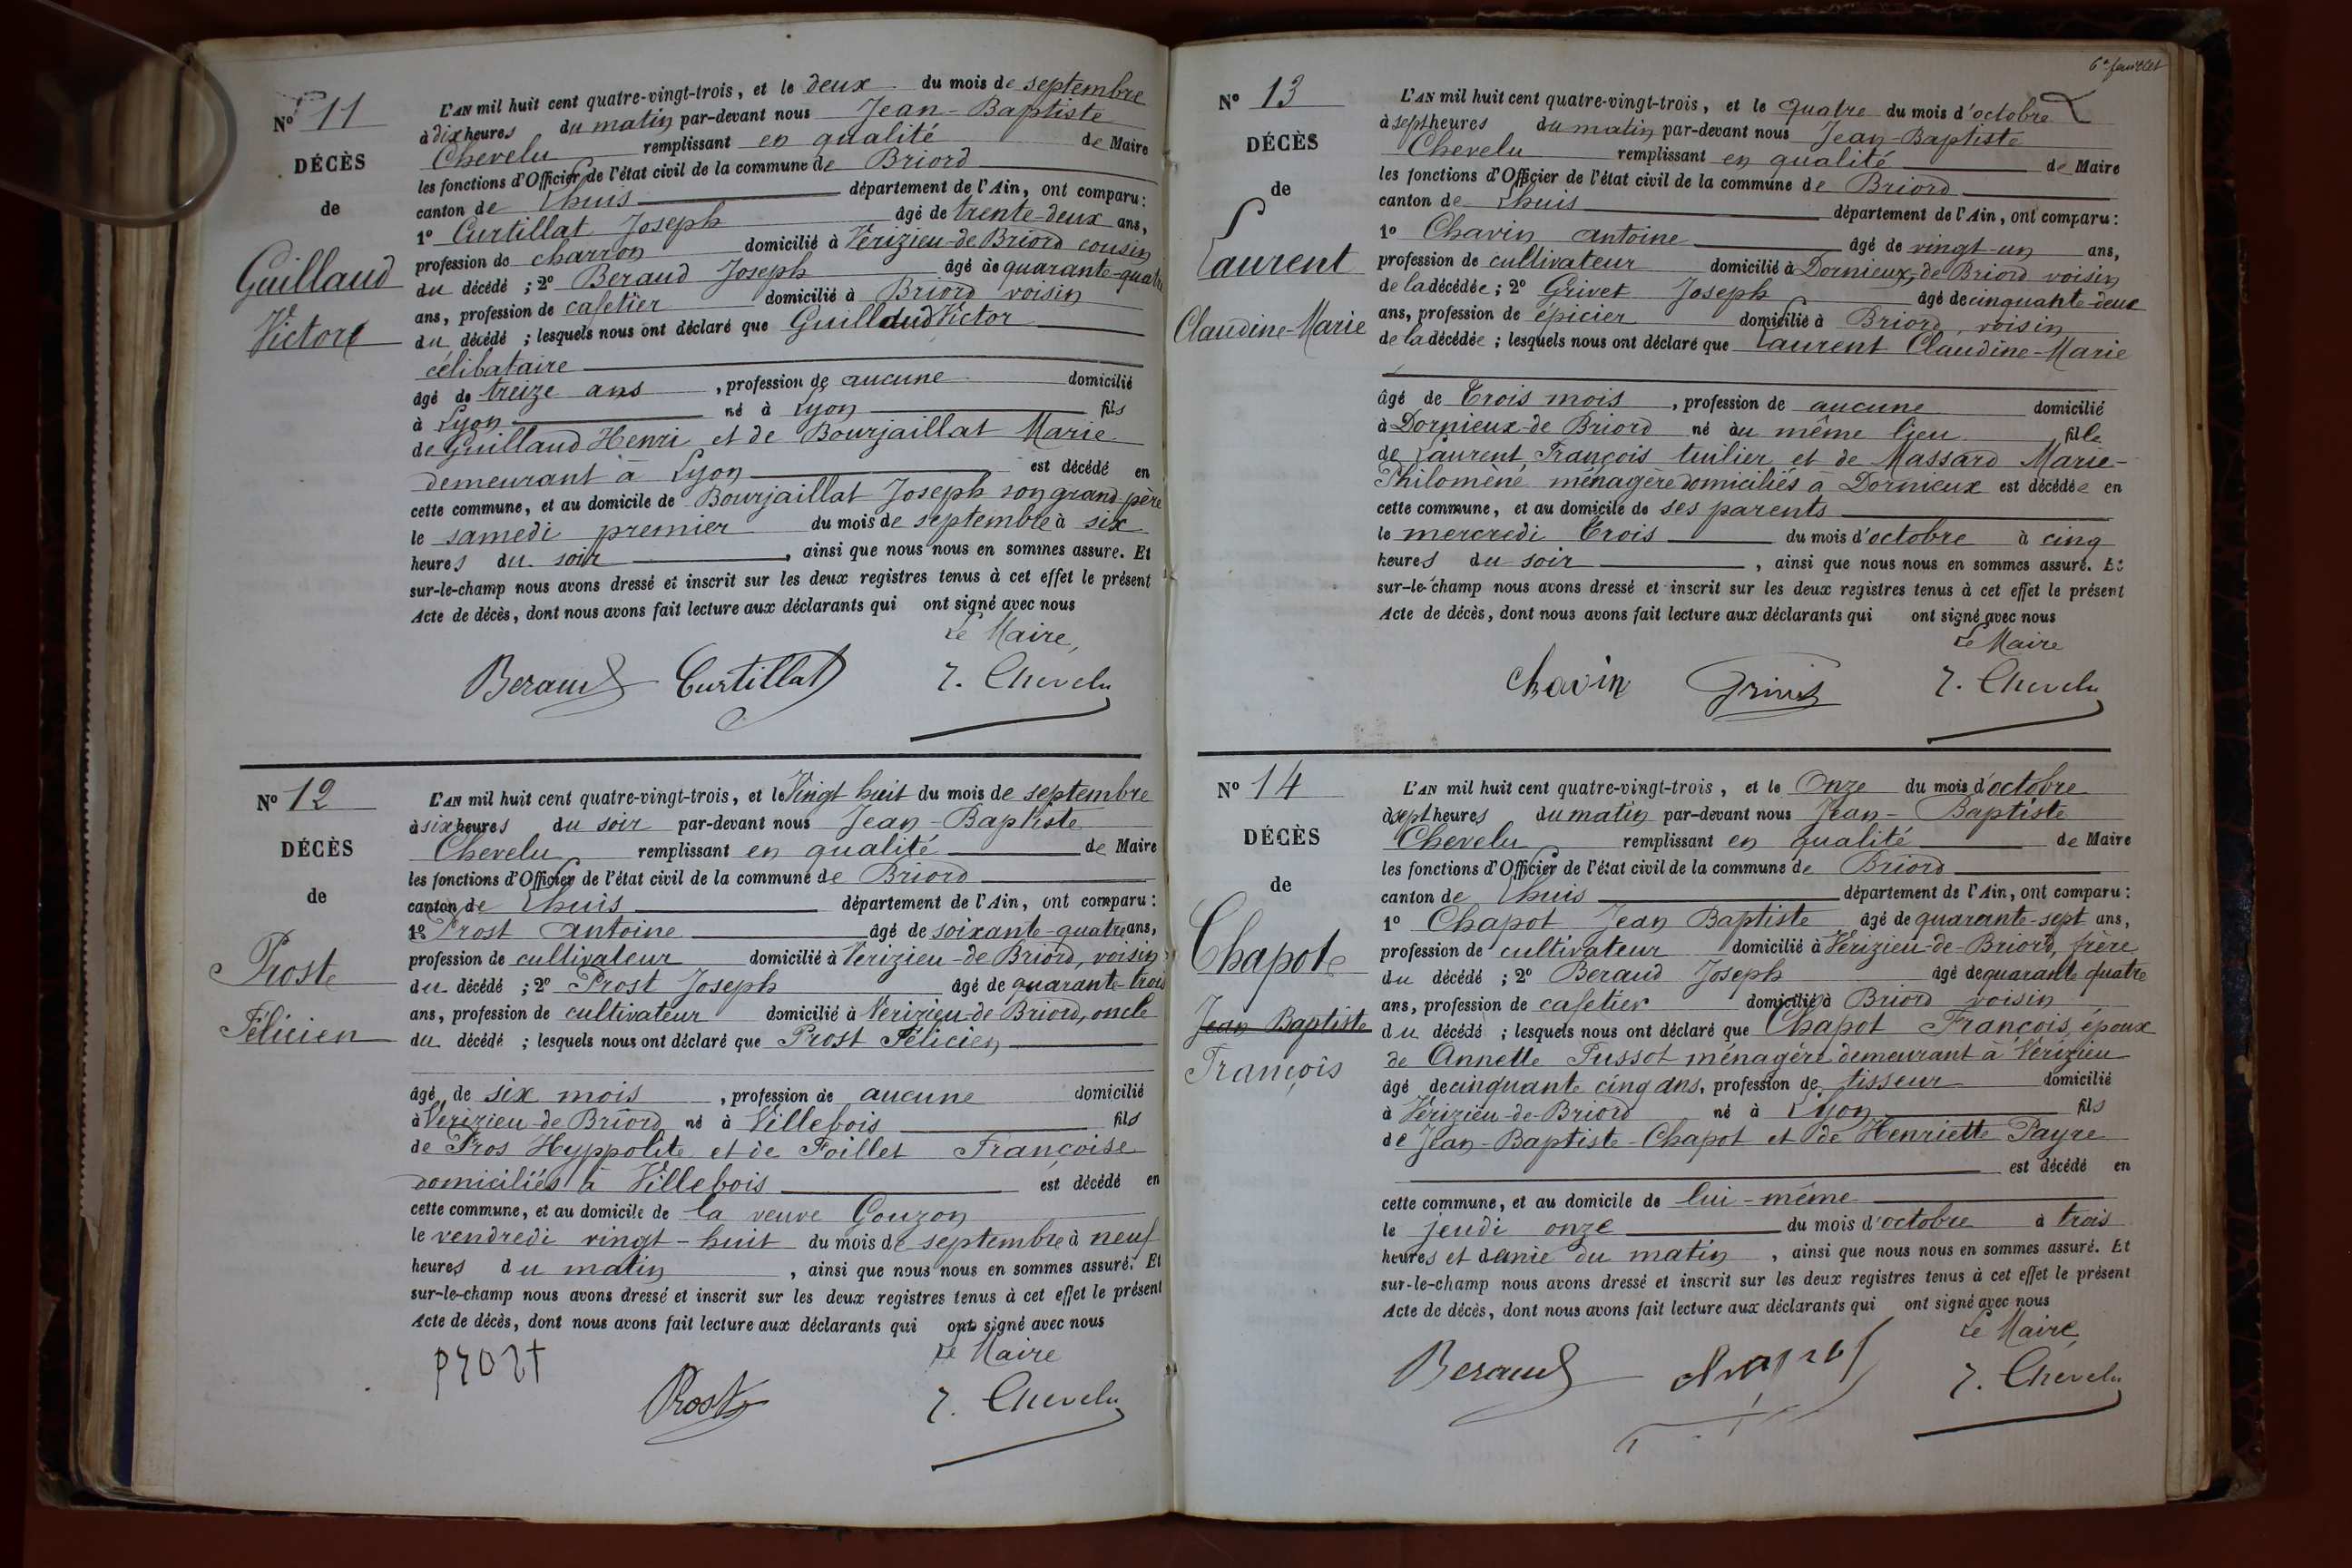 N° 11
DÉCÈS
de
Guillaud
Victor
L'AN mil huit cent quatre-vingt-trois, et le deux du mois de septembre
à dix heures du matin par-devant nous Jean-Baptiste
Chevelu remplissant en qualité de Maire
les fonctions d'Officier de l'état civil de la commune de Briord
canton de Lhuis département de l'Ain, ont comparu :
1° Curtillat Joseph âgé de trente-deux ans,
profession de charron domicilié à Vérizieu-de Briord cousin
du décédé ; 2° Beraud Joseph âgé de quarante-quatre
ans, profession de cafetier domicilié à Briord voisin
du décédé ; lesquels nous ont déclaré que Guillaud Victor
célibataire
âgé de treize ans, profession de aucune domicilié
à Lyon né à Lyon fils
de Guillaud Henri et de Bourjaillat Marie
demeurant à Lyon est décédé en
cette commune, et au domicile de Bourjaillat Joseph son grand-père
le samedi premier du mois de septembre à six
heures du soir, ainsi que nous nous en sommes assuré. Et
sur-le-champ nous avons dressé et inscrit sur les deux registres tenus à cet effet le présent
Acte de décès, dont nous avons fait lecture aux déclarants qui ont signé avec nous
Le Maire,
Beraud Curtillat J. Chevelu
N° 12
DÉCÈS
de
Prost
Félicien
L'AN mil huit cent quatre-vingt-trois, et le Vingt huit du mois de septembre
à six heures du soir par-devant nous Jean-Baptiste
Chevelu remplissant en qualité de Maire
les fonctions d'Officier de l'état civil de la commune de Briord
canton de Lhuis département de l'Ain, ont comparu :
1° Prost Antoine âgé de soixante-quatre ans,
profession de cultivateur domicilié à Vérizieu-de Briord, voisin
du décédé ; 2° Prost Joseph âgé de quarante-trois
ans, profession de cultivateur domicilié à Vérizieu-de Briord, oncle
du décédé ; lesquels nous ont déclaré que Prost Félicien
âgé de six mois, profession de aucune domicilié
à Vérizieu de Briord né à Villebois fils
de Pros Hyppolite et de Foillet Françoise
domiciliés à Villebois est décédé en
cette commune, et au domicile de la veuve Gouzon
le vendredi vingt-huit du mois de septembre à neuf
heures du matin, ainsi que nous nous en sommes assuré. Et
sur-le-champ nous avons dressé et inscrit sur les deux registres tenus à cet effet le présent
Acte de décès, dont nous avons fait lecture aux déclarants qui ont signé avec nous
Le Maire
prost Prost J. Chevelu
6e feuillet
N° 13
DÉCÈS
de
Laurent
Claudine-Marie
L'AN mil huit cent quatre-vingt-trois, et le quatre du mois d'octobre
à sept heures du matin par-devant nous Jean-Baptiste
Chevelu remplissant en qualité de Maire
les fonctions d'Officier de l'état civil de la commune de Briord
canton de Lhuis département de l'Ain, ont comparu :
1° Chavin Antoine âgé de vingt-un ans,
profession de cultivateur domicilié à Dornieux-de Briord voisin
de la décédée ; 2° Grivet Joseph âgé de cinquante-deux
ans, profession de épicier domicilié à Briord, voisin
de la décédée ; lesquels nous ont déclaré que Laurent Claudine-Marie
âgé de Trois mois, profession de aucune domicilié
à Dornieux-de Briord né au même lieu fille
de Laurent François tuilier et de Massard Marie-
Philomène ménagère domiciliés à Dornieux est décédée en
cette commune, et au domicile de ses parents
le mercredi Trois du mois d'octobre à cinq
heures du soir, ainsi que nous nous en sommes assuré. Et
sur-le-champ nous avons dressé et inscrit sur les deux registres tenus à cet effet le présent
Acte de décès, dont nous avons fait lecture aux déclarants qui ont signé avec nous
Le Maire
Chavin Grivet J. Chevelu
N° 14
DÉCÈS
de
Chapot
Jean Baptiste
François
L'AN mil huit cent quatre-vingt-trois, et le Onze du mois d'octobre
à sept heures du matin par-devant nous Jean-Baptiste
Chevelu remplissant en qualité de Maire
les fonctions d'Officier de l'état civil de la commune de Briord
canton de Lhuis département de l'Ain, ont comparu :
1° Chapot Jean Baptiste âgé de quarante-sept ans,
profession de cultivateur domicilié à Vérizieu-de-Briord, frère
du décédé ; 2° Beraud Joseph âgé de quarante quatre
ans, profession de cafetier domicilié à Briord voisin
du décédé ; lesquels nous ont déclaré que Chapot François, époux
de Annette Pussot ménagère demeurant à Vérizieu
âgé de cinquante cinq ans, profession de tisseur domicilié
à Vérizieu-de-Briord né à Lyon fils
de Jean-Baptiste-Chapot et de Henriette Payre
est décédé en
cette commune, et au domicile de lui-même
le jeudi onze du mois d'octobre à trois
heures et demie du matin, ainsi que nous nous en sommes assuré. Et
sur-le-champ nous avons dressé et inscrit sur les deux registres tenus à cet effet le présent
Acte de décès, dont nous avons fait lecture aux déclarants qui ont signé avec nous
Le Maire,
Beraud chapot J. Chevelu